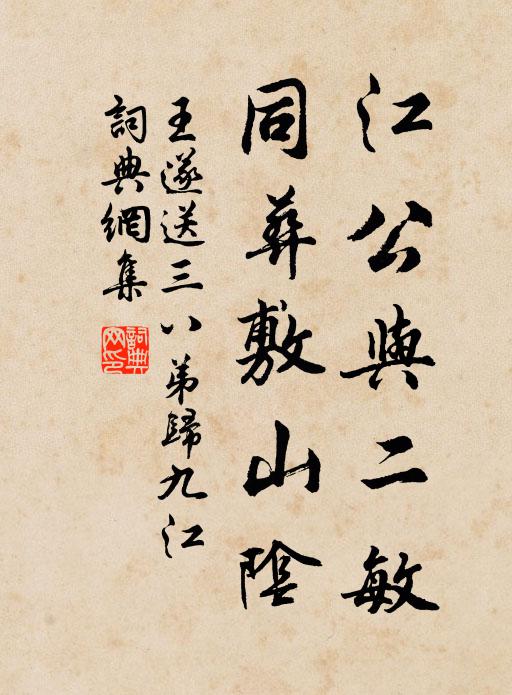 江公與二敏
同葬敷山陰
王遂送三八弟歸九江
詞典網集
詞典網印